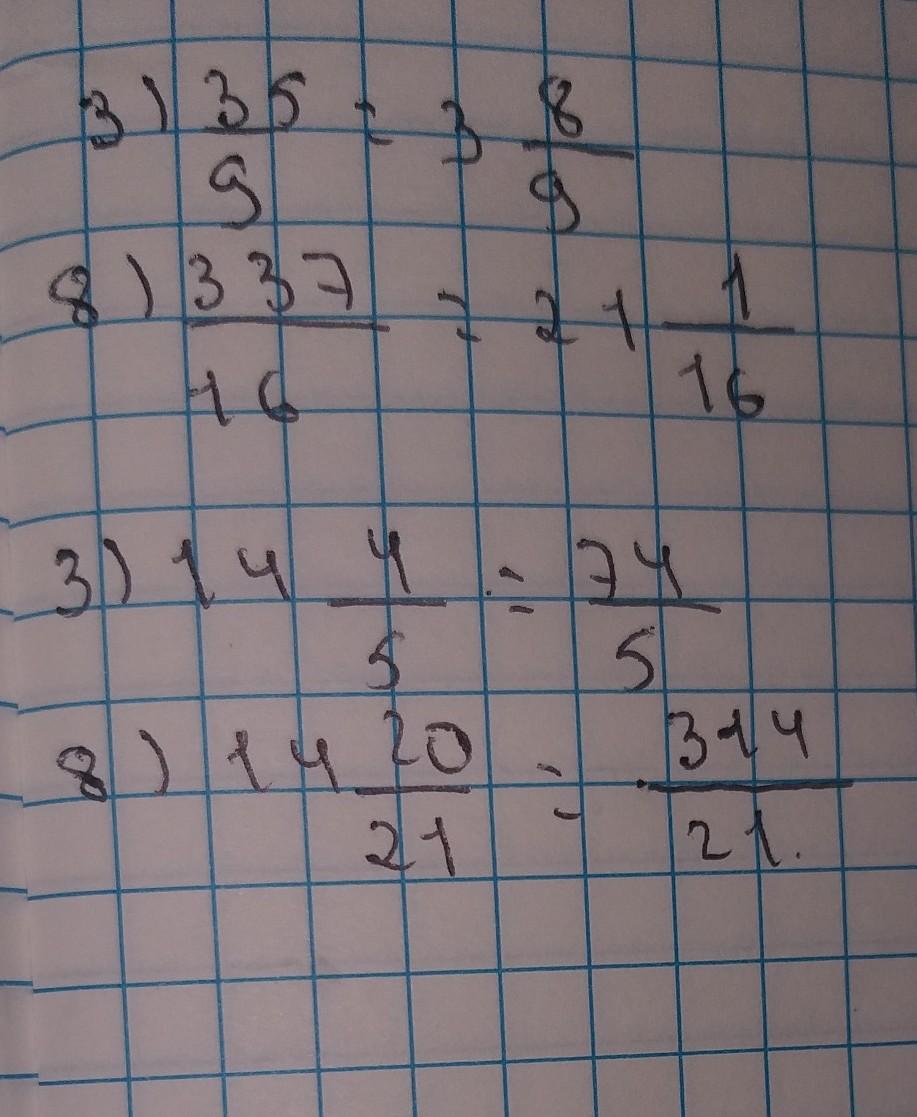 3) 35/9 = 3 8/9
8) 337/16 = 21 1/16
3) 14 4/5 = 74/5
8) 14 20/21 = 314/21.